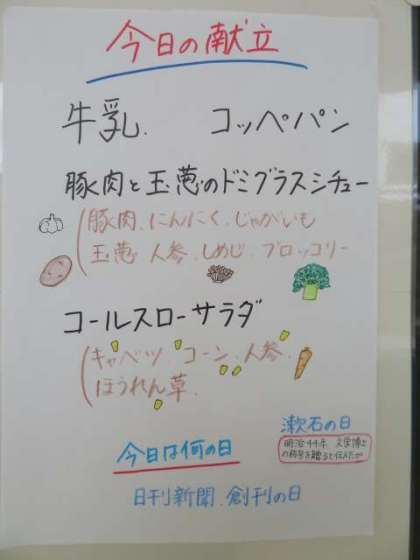 今日の献立
牛乳. コッペパン
豚肉と玉葱のドミグラスシチュー
豚肉.にんにく.じゃがいも
玉葱.人参.しめじ.ブロッコリー
コールスローサラダ
キャベツ.コーン.人参.
ほうれん草.
漱石の日
明治44年 文学博士
の称号を贈ると伝えたが
今日は何の日
日刊新聞.創刊の日